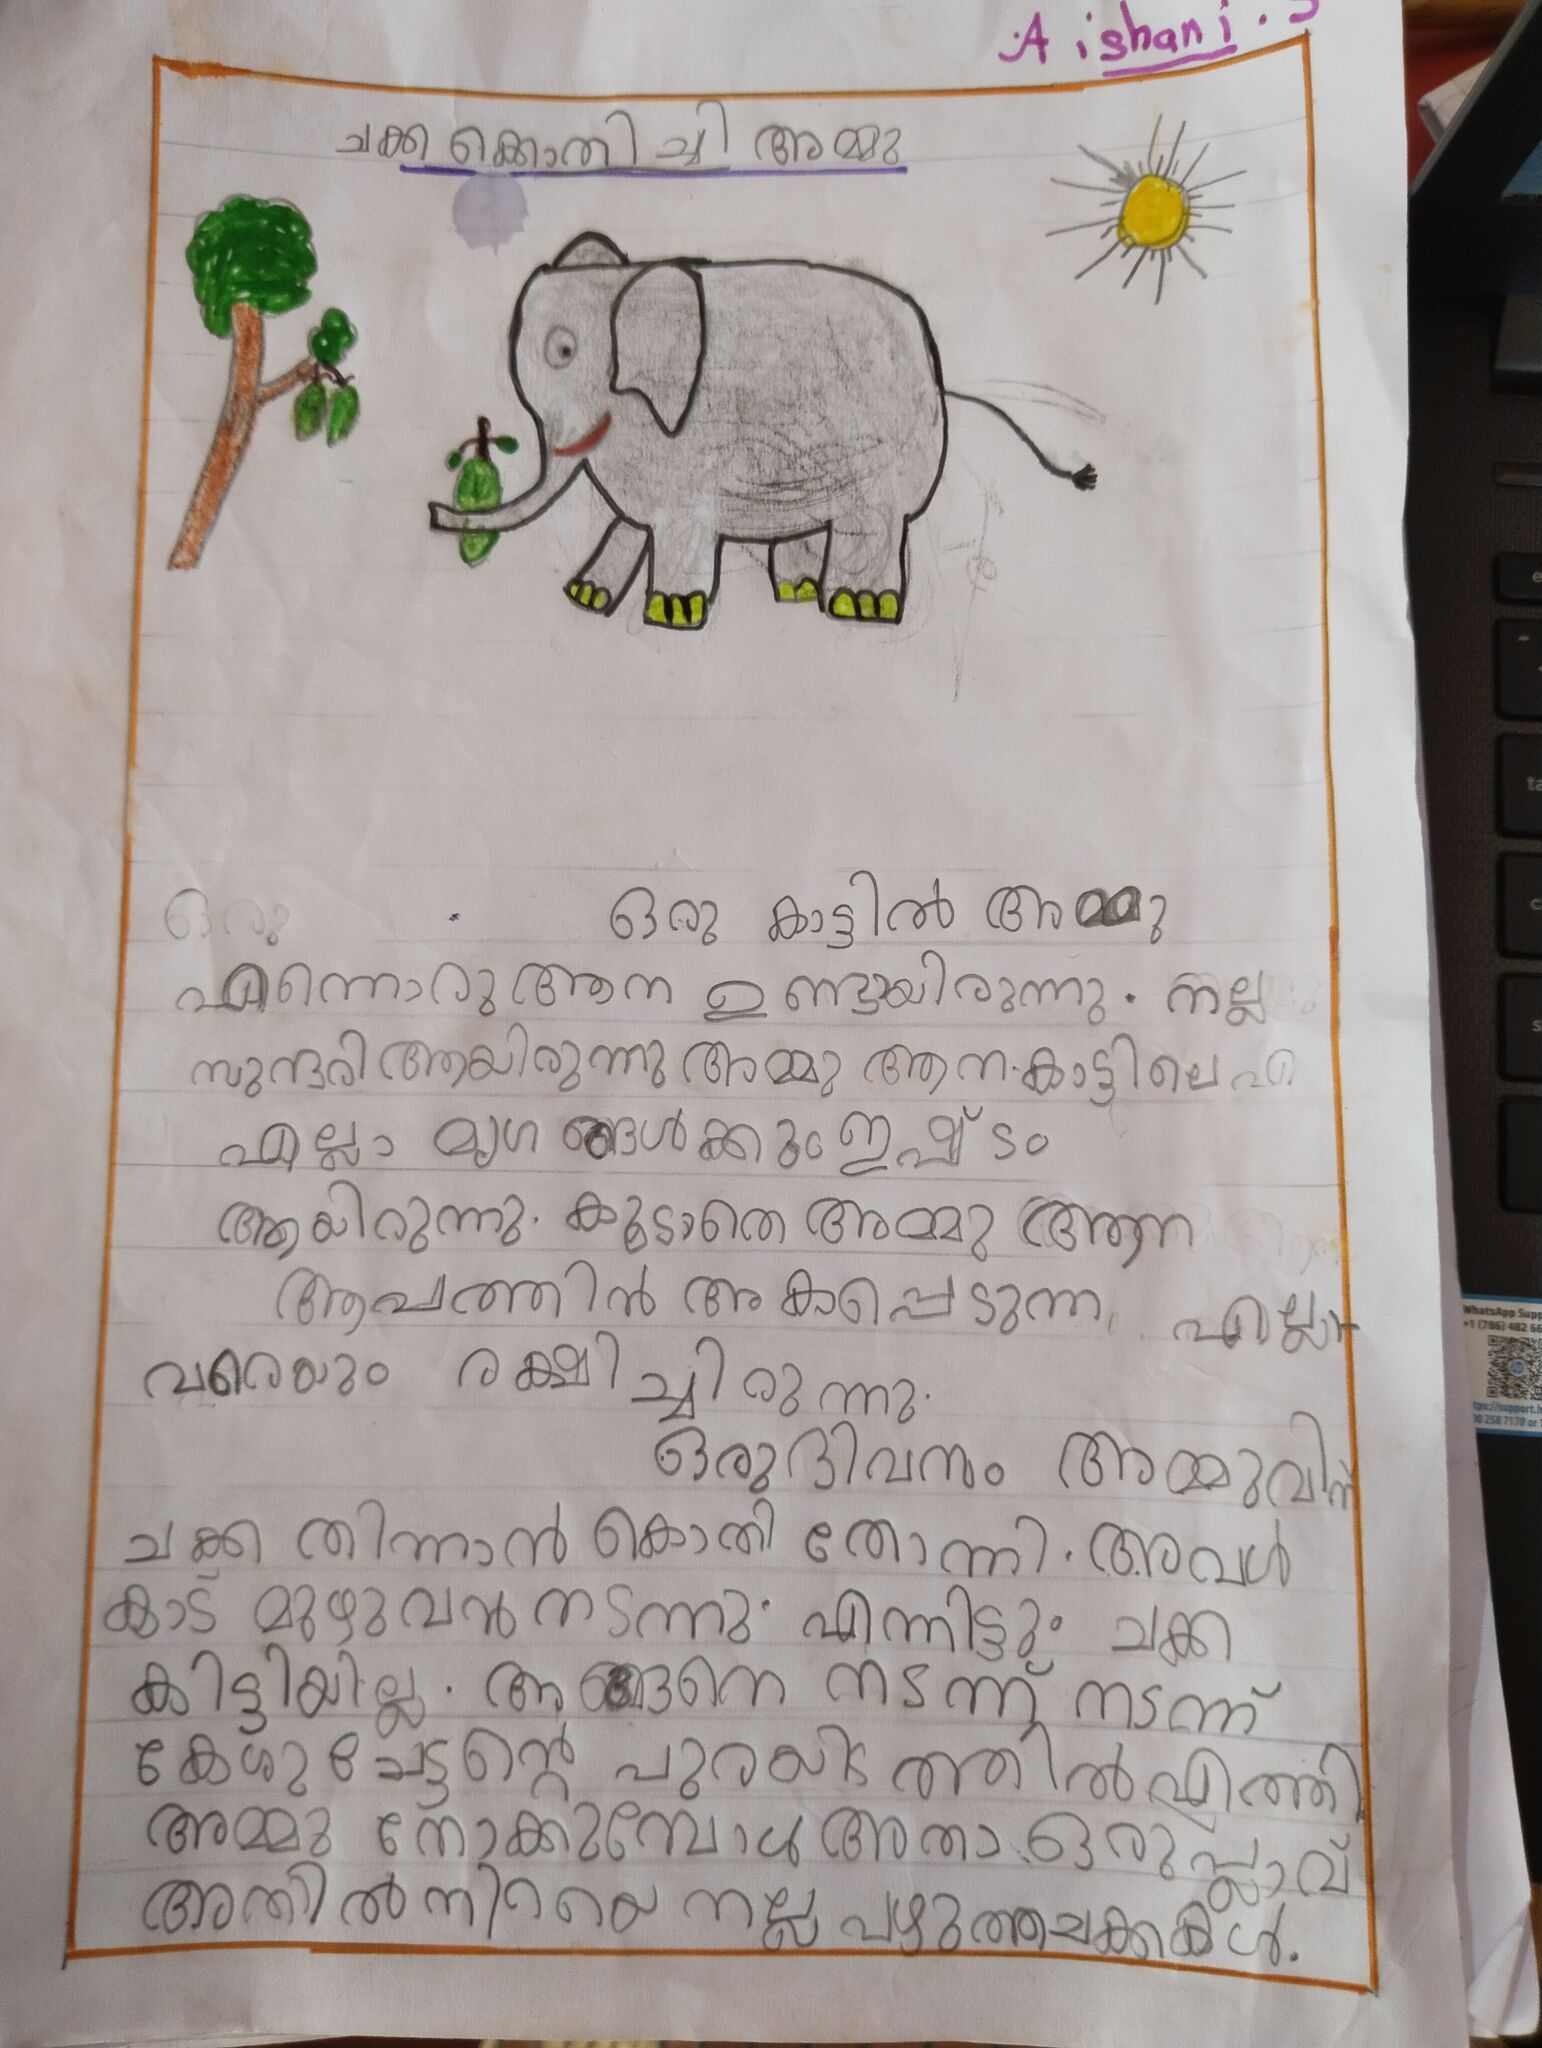 Aishani.S
ചക്ക കൊതിച്ചി അമ്മു
ഒരു
ഒരു കാട്ടിൽ അമ്മു
എന്നൊരു ആന ഉണ്ടായിരുന്നു. നല്ല
സുന്ദരി ആയിരുന്നു അമ്മു ആന. കാട്ടിലെ എ
എല്ലാ മൃഗങ്ങൾക്കും ഇഷ്ടം
ആയിരുന്നു. കൂടാതെ അമ്മു ആന
ആപത്തിൻ അകപ്പെടുന്ന എല്ലാ
വരെയും രക്ഷിച്ചിരുന്നു.
ഒരു ദിവസം അമ്മുവിന്
ചക്ക തിന്നാൻ കൊതി തോന്നി. അവൾ
കാട് മുഴുവൻ നടന്നു. എന്നിട്ടും ചക്ക
കിട്ടിയില്ല. അങ്ങനെ നടന്ന് നടന്ന്
കേശു ചേട്ടന്റെ പുരയിടത്തിൽ എത്തി
അമ്മു നോക്കുമ്പോൾ അതാ ഒരു പ്ലാവ്
അതിൽ നിറയെ നല്ല പഴുത്ത ചക്കകൾ.
e
ta
WhatsApp Supp
+1 (786) 482 66